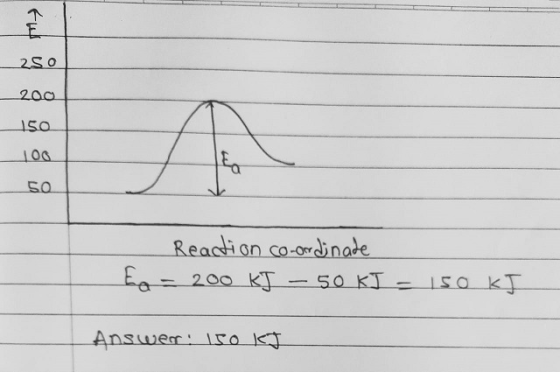 ↑
E
250
200
150
100
50
Ea
Reaction co-ordinate
Ea = 200 KJ – 50 KJ = 150 KJ
Answer: 150 KJ